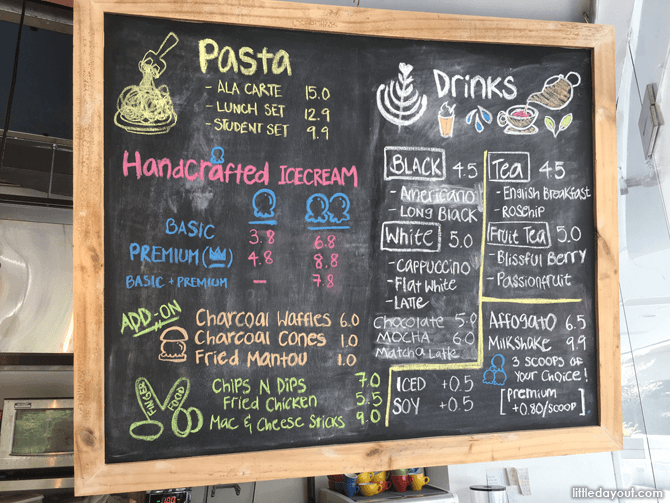 Pasta
- ALA CARTE 15.0
- LUNCH SET 12.9
- STUDENT SET 9.9
Handcrafted ICECREAM
BASIC 3.8 6.8
PREMIUM ( ) 4.8 8.8
BASIC + PREMIUM — 7.8
ADD-ON
Charcoal Waffles 6.0
Charcoal Cones 1.0
Fried Mantou 1.0
FINGER FOOD
CHIPS N DIPS 7.0
Fried Chicken 5.5
Mac & Cheese Sticks 9.0
Drinks
BLACK 4.5
- Americano
- LONG BLACK
White 5.0
- CAPPUCCINO
- Flat White
- LATTE
Chocolate 5.0
MOCHA 6.0
Matcha Latte
ICED +0.5
SOY +0.5
Tea 4.5
- English Breakfast
- Rosehip
Fruit Tea 5.0
- Blissful Berry
- Passionfruit
Affogato 6.5
Milkshake 9.9
3 SCOOPS OF
YOUR CHOICE!
[premium
+0.80/scoop]
littledayout.com